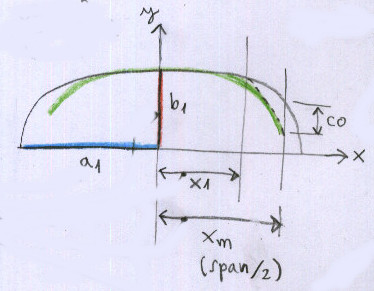 y
b1
co
x
a1
x1
xm
(span/2)